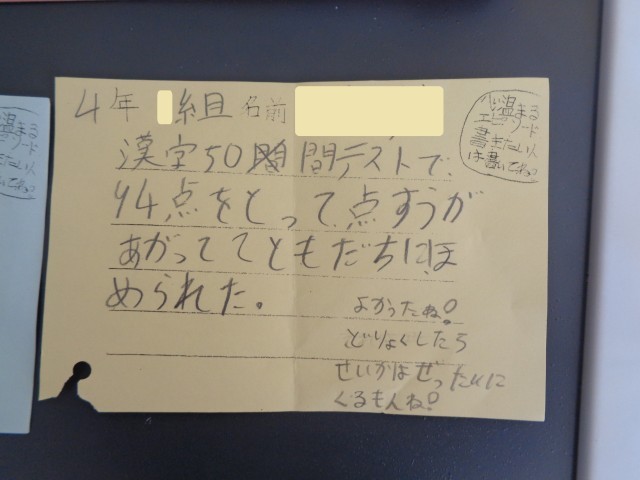 4年 組 名前
漢字50問間テストで、
94点をとって点すうが
あがっててともだちにほ
められた。
よかったね!
どりょくしたら
せいかはぜったいに
くるもんね!
心温まる
エピソード
書きたい人
は書いてね。
温まる
ソード
たい人
いてね。